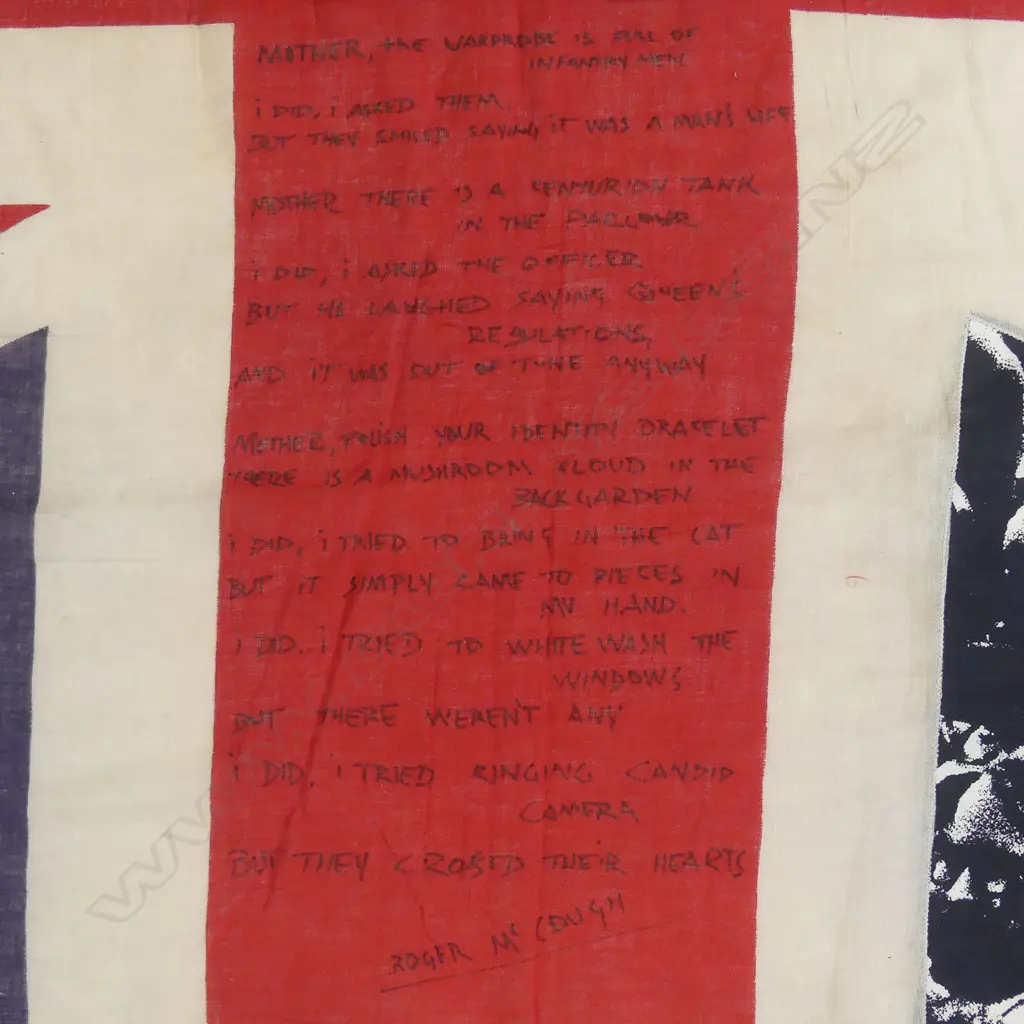 MOTHER, the WARDROBE is FULL OF
INFANTRY MEN
i DID, i ASKED THEM
BUT THEY SMILED SAYING IT WAS A MAN'S LIFE
MOTHER THERE IS A CENTURION TANK
IN THE PARLOUR
i DID, i ASKED THE OFFICER
BUT HE LAUGHED SAYING QUEEN'S
REGULATIONS,
AND iT WAS OUT OF TUNE ANYWAY
MOTHER, POLISH YOUR IDENTITY BRACELET
THERE IS A MUSHROOM CLOUD IN THE
BACK GARDEN
i DID, i TRIED TO BRING IN THE CAT
BUT IT SIMPLY CAME TO PIECES IN
MY HAND.
i DID. i TRIED TO WHITE WASH THE
WINDOWS
BUT THERE WEREN'T ANY
i DID, i TRIED RINGING CANDID
CAMERA
BUT THEY CROSED THEiR HEARTS
ROGER Mc GOUGH